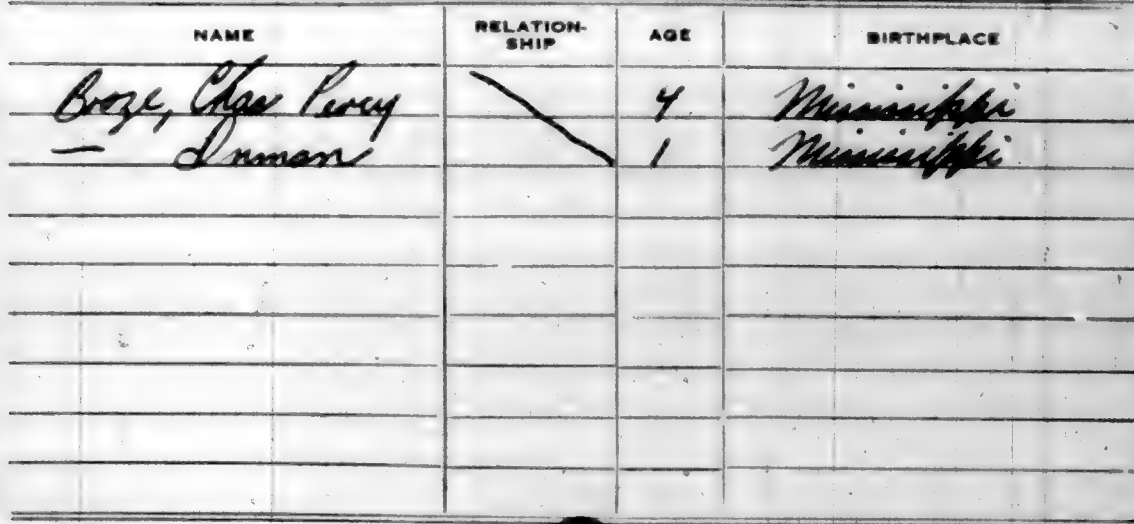 NAME RELATION-SHIP AGE BIRTHPLACE
Booze, Chas Percy 4 Mississippi
— Inman 1 Mississippi